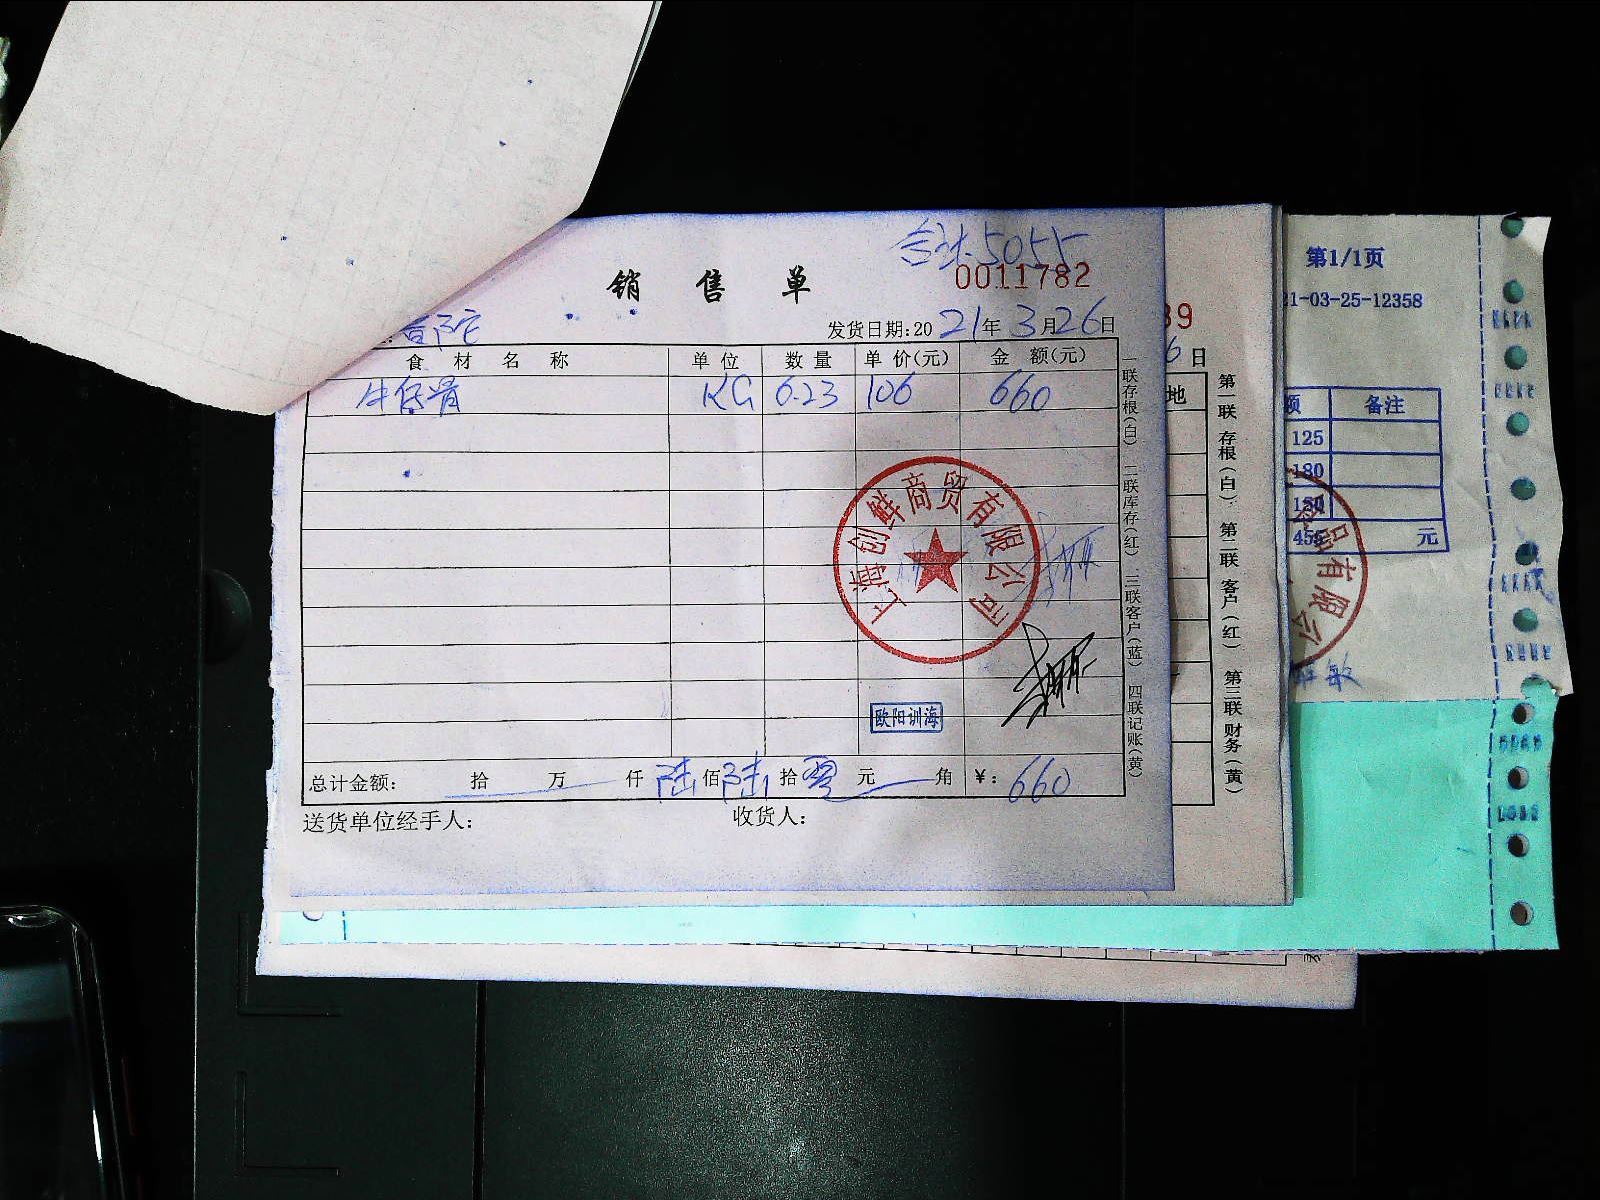 合计5055
销售单
0011782
首陀
发货日期:2021年3月26日
食材名称 单位 数量 单价(元) 金额(元)
牛仔骨 KG 6.23 106 660
上海创鲜商贸有限公司
欧阳训海
总计金额: 拾 万 仟 陆 佰 陆 拾 零 元 角 ¥:660
送货单位经手人: 收货人:
一联存根(白) 二联库存(红) 三联客户(蓝) 四联记账(黄)
39
6日
地
第一联 存根(白) 第二联 客户(红) 第三联 财务(黄)
第1/1页
21-03-25-12358
额 备注
125
180
150
455 元
品有限公
敏